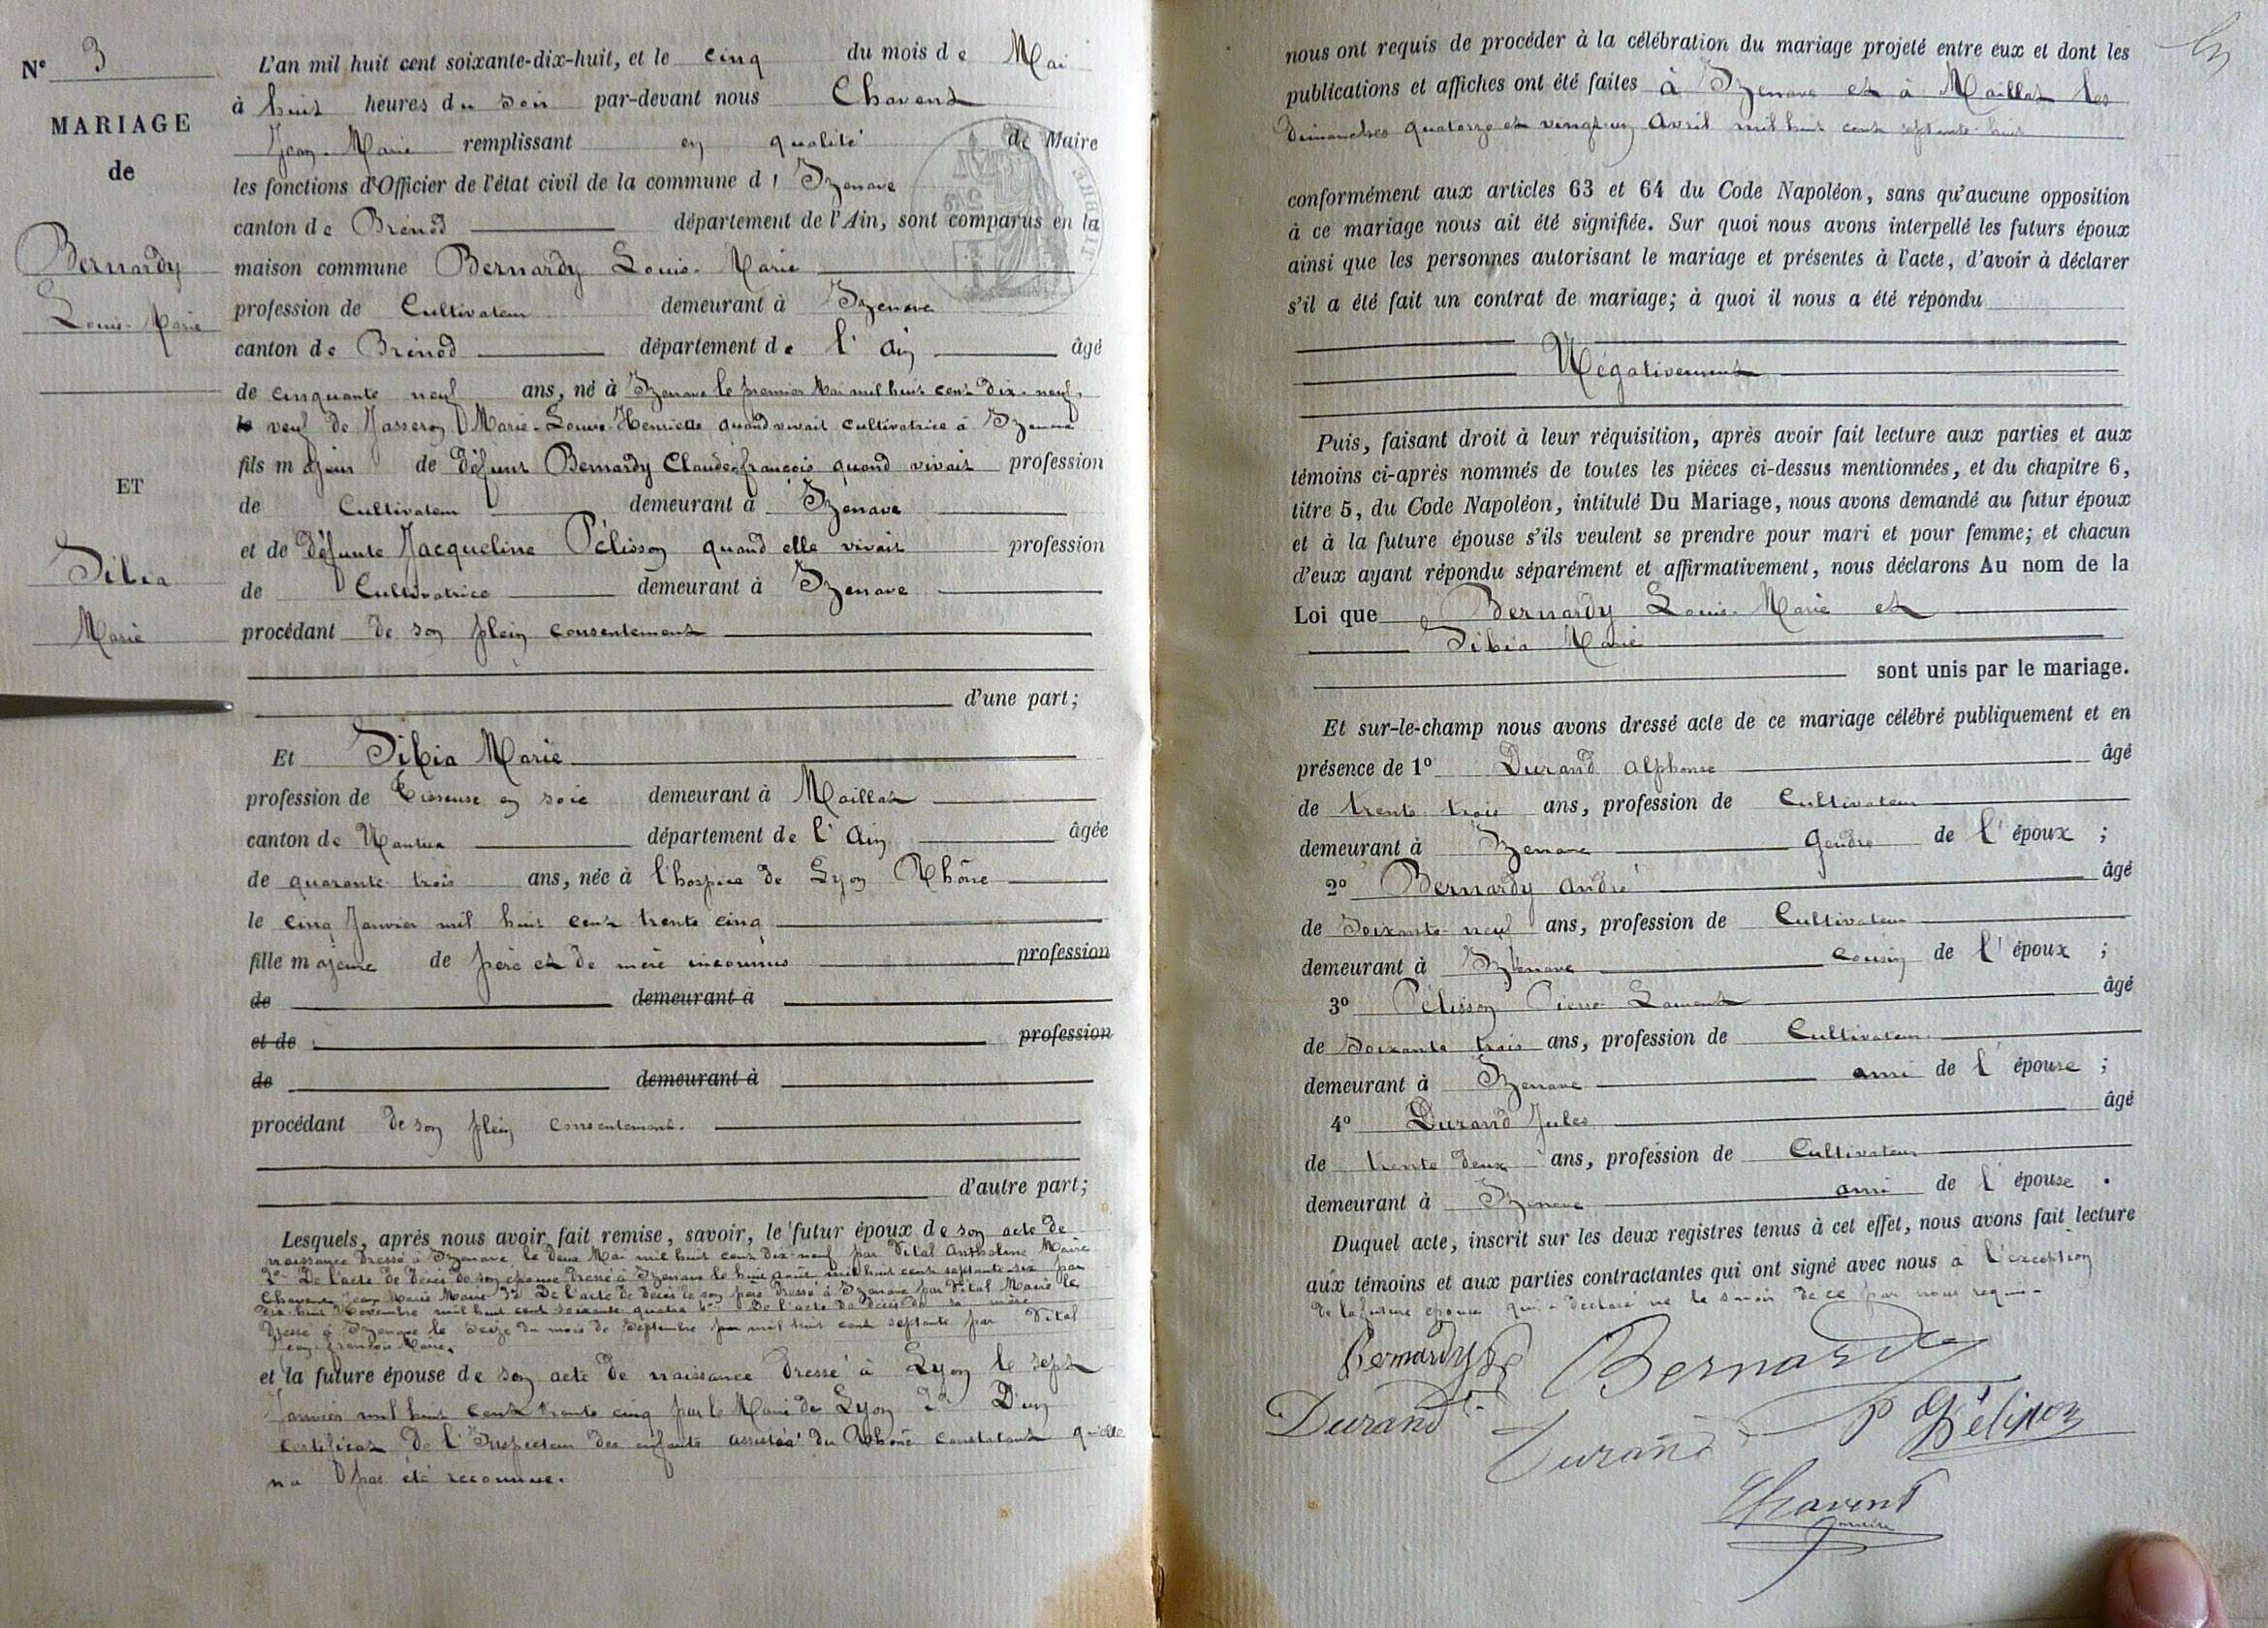 N° 3
MARIAGE
de
Bernardy
Louis-Marie
ET
Tibia
Marie
L'an mil huit cent soixante-dix-huit, et le cinq du mois de Mai
à huit heures du soir par-devant nous Chavent
Jean-Marie remplissant en qualité de Maire
les fonctions d'Officier de l'état civil de la commune d'Izenave
canton de Brénod département de l'Ain, sont comparus en la
maison commune Bernardy Louis-Marie
profession de Cultivateur demeurant à Izenave
canton de Brénod département de l'Ain âgé
de cinquante neuf ans, né à Izenave le premier Mai mil huit cent dix-neuf,
veuf de Jasseron Marie-Louise Henriette quand vivait cultivatrice à Izenave
fils majeur de défunt Bernardy Claude-françois quand vivait profession
de Cultivateur demeurant à Izenave
et de défunte Jacqueline Pélisson quand elle vivait profession
de Cultivatrice demeurant à Izenave
procédant de son plein consentement
d'une part;
Et Tibia Marie
profession de Tisseuse en soie demeurant à Maillat
canton de Nantua département de l'Ain âgée
de quarante trois ans, née à l'hospice de Lyon Rhône
le cinq Janvier mil huit cent trente cinq
fille majeure de père et de mère inconnus profession
de demeurant à
et de profession
de demeurant à
procédant de son plein consentement.
d'autre part;
Lesquels, après nous avoir fait remise, savoir, le futur époux de son acte de
naissance dressé à Izenave le deux Mai mil huit cent dix-neuf par Vital Anthelme Maire
2° De l'acte de décès de son épouse dressé à Izenave le huit août mil huit cent septante-six par
Chavent Jean Marie Maire 3° De l'acte de décès de son père dressé à Izenave par Vital Maire le
dix-huit Novembre mil huit cent soixante quatre 4° De l'acte de décès de sa mère
dressé à Izenave le seize du mois de Septembre mil huit cent septante par Vital
Jean-françois Maire.
et la future épouse de son acte de naissance dressé à Lyon le sept
Janvier mil huit cent trente cinq par le Maire de Lyon 2° D'un
certificat de l'Inspecteur des enfants assistés du Rhône constatant qu'elle
n'a pas été reconnue.
nous ont requis de procéder à la célébration du mariage projeté entre eux et dont les
publications et affiches ont été faites à Izenave et à Maillat les
dimanches quatorze et vingt-un Avril mil huit cent septante-huit
conformément aux articles 63 et 64 du Code Napoléon, sans qu'aucune opposition
à ce mariage nous ait été signifiée. Sur quoi nous avons interpellé les futurs époux
ainsi que les personnes autorisant le mariage et présentes à l'acte, d'avoir à déclarer
s'il a été fait un contrat de mariage; à quoi il nous a été répondu
Négativement
Puis, faisant droit à leur réquisition, après avoir fait lecture aux parties et aux
témoins ci-après nommés de toutes les pièces ci-dessus mentionnées, et du chapitre 6,
titre 5, du Code Napoléon, intitulé Du Mariage, nous avons demandé au futur époux
et à la future épouse s'ils veulent se prendre pour mari et pour femme; et chacun
d'eux ayant répondu séparément et affirmativement, nous déclarons Au nom de la
Loi que Bernardy Louis-Marie et
Tibia Marie
sont unis par le mariage.
Et sur-le-champ nous avons dressé acte de ce mariage célébré publiquement et en
présence de 1° Durand Alphonse âgé
de trente trois ans, profession de Cultivateur
demeurant à Izenave gendre de l'époux ;
2° Bernardy André âgé
de Soixante-neuf ans, profession de Cultivateur
demeurant à Izenave cousin de l'époux ;
3° Pélisson Pierre Laurent âgé
de Soixante trois ans, profession de Cultivateur
demeurant à Izenave ami de l'épouse ;
4° Durand Jules âgé
de trente deux ans, profession de Cultivateur
demeurant à Izenave ami de l'épouse .
Duquel acte, inscrit sur les deux registres tenus à cet effet, nous avons fait lecture
aux témoins et aux parties contractantes qui ont signé avec nous à l'exception
de la future épouse qui a déclaré ne le savoir de ce par nous requise
Bernardy Bernardy
Durand Durand P Pélisson
Chavent
maire